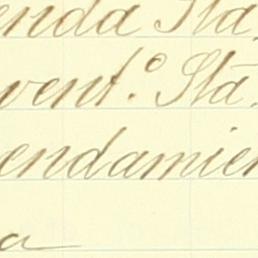 enda Sta
vent.º Sta
endamien
a